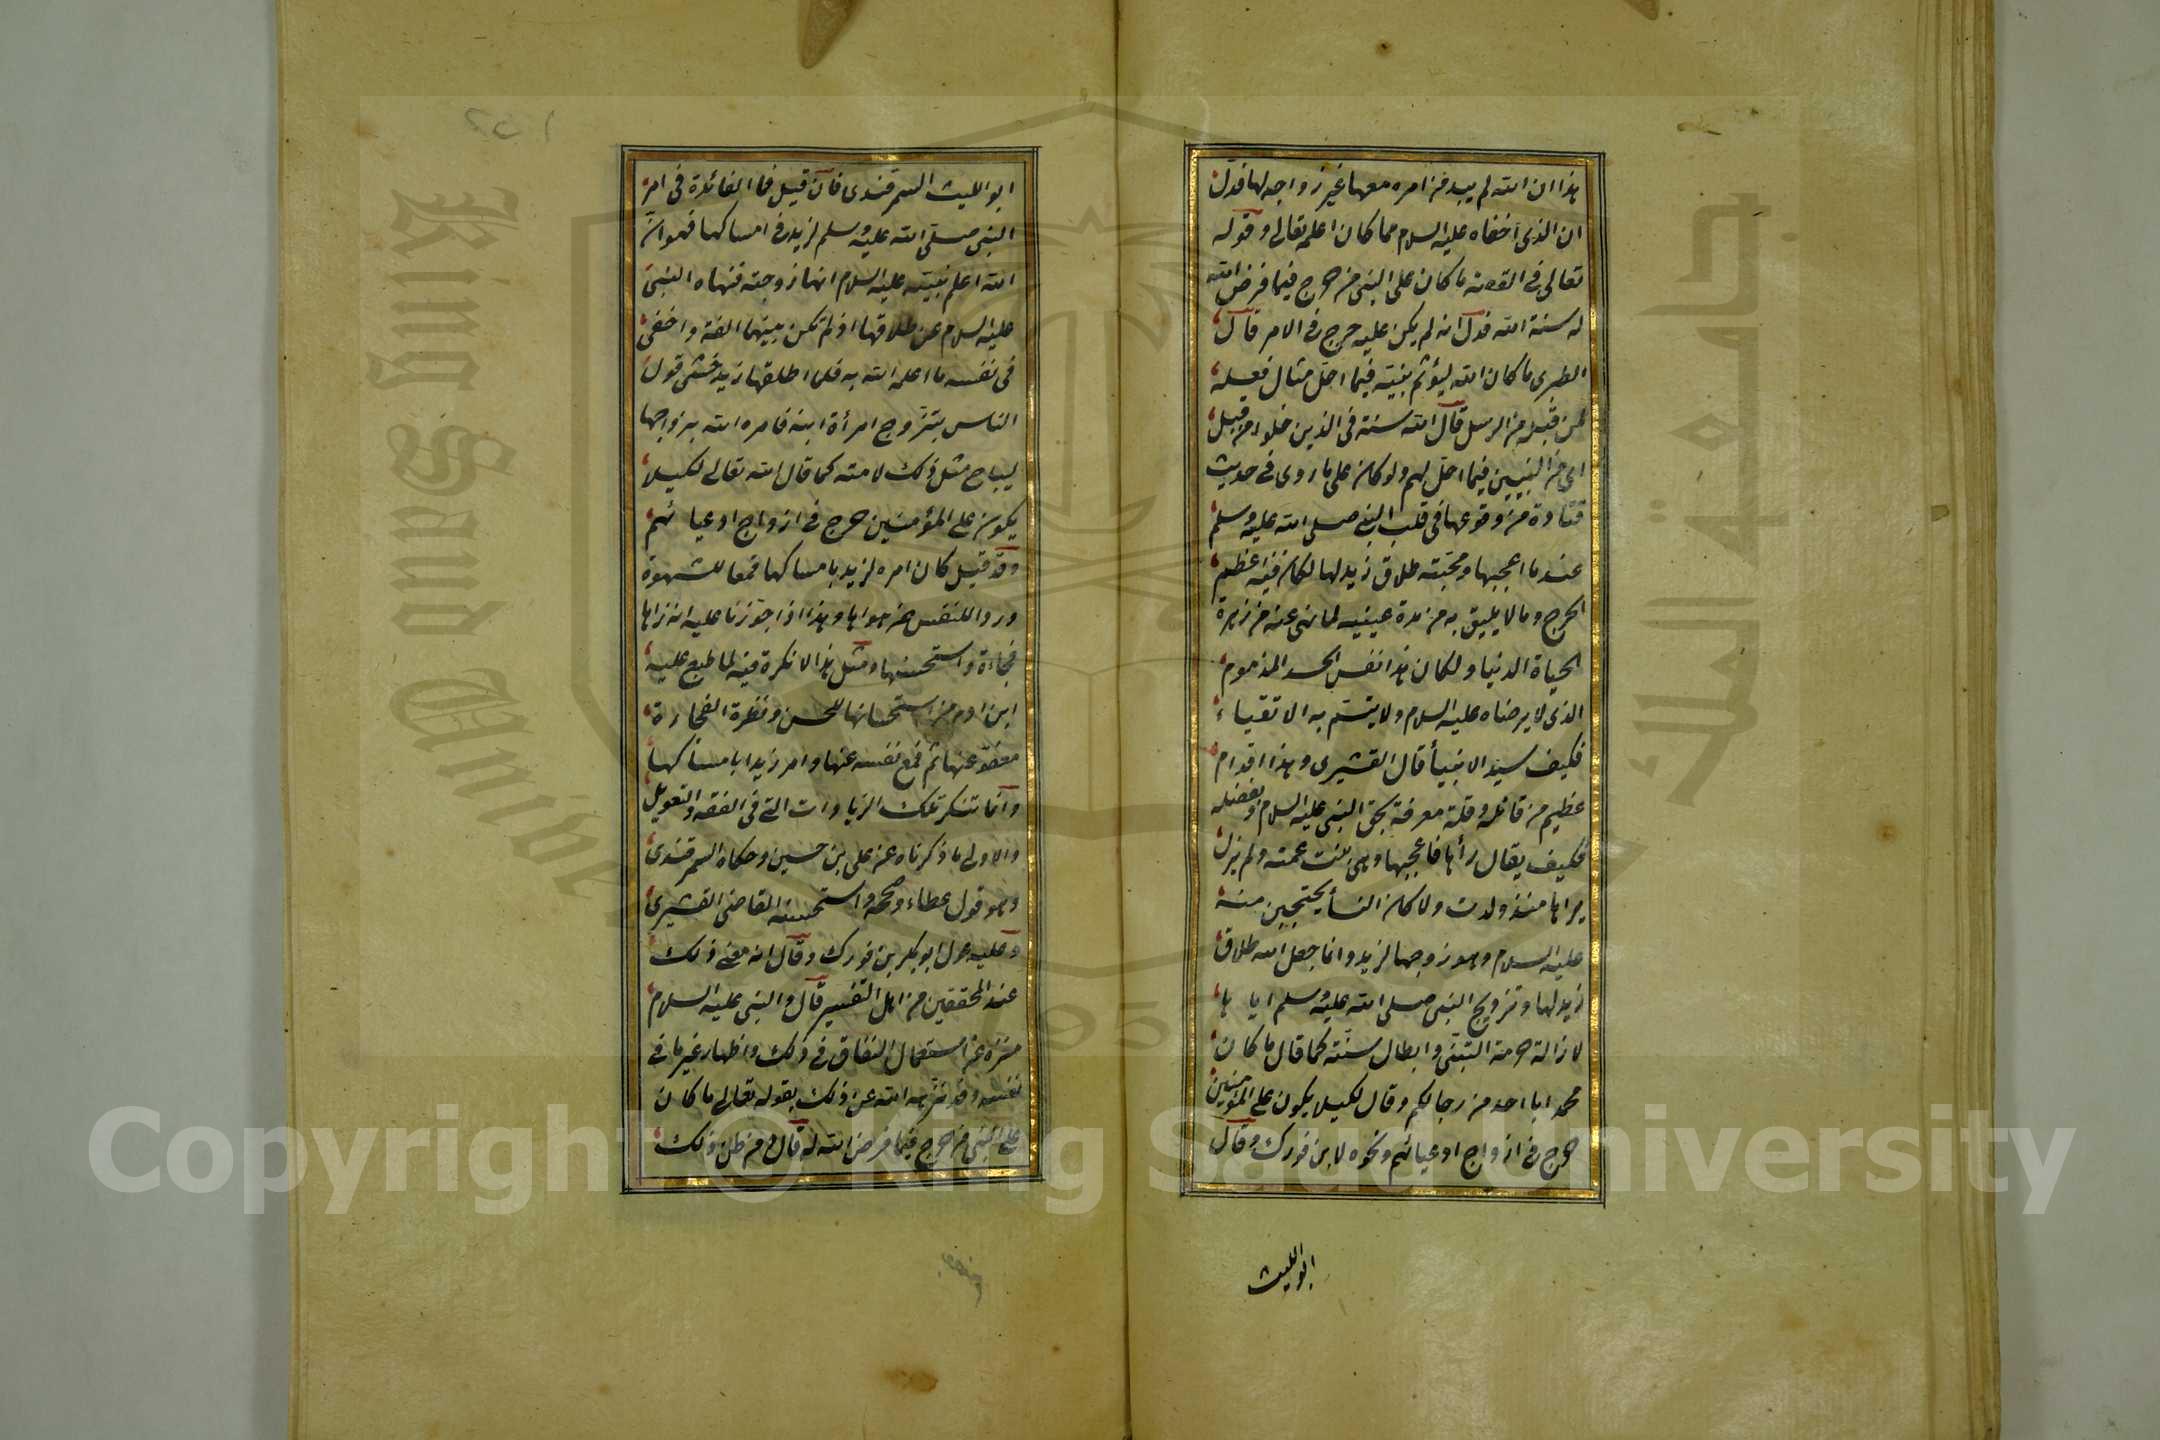 هذا ان الله لم يبد من امره معها غير زواجه لها فدل
ان الذى اخفاه عليه السلام مما كان اعلمه تعالى وقوله
تعالى فى القصة ما كان على النبى من حرج فيما فرض الله
له سنة الله فدل انه لم يكن عليه حرج فى الامر قال
الطبرى ما كان الله ليؤثم نبيه فيما احل مثال فعله
لمن قبله من الرسل قال الله سنة فى الذين خلوا من قبل
اى من النبيين فيما احل لهم ولو كان على ما روى فى حديث
قتادة من وقوعها فى قلب النبى صلى الله عليه وسلم
عند ما اعجبها ومحبته طلاق زيد لها لكان فيه اعظم
الحرج وما لا يليق به من مدة عينيه لما نهى عنه من زهرة
الحياة الدنيا ولكان هذا نفس الحسد المذموم
الذى لا يرضاه عليه السلام ولا يتسم به الاتقياء
فكيف سيد الانبيأ قال القشيرى وهذا اقدام
عظيم من قائله وقلة معرفة بحق النبى عليه السلام وبفضله
فكيف يقال رأها فاعجبها وهى بنت عمته ولم يزل
يراها منذ ولدت ولا كان النسأ يحتجبن منه
عليه السلام وهو زوجها لزيد وانما جعل الله طلاق
زيد لها وتزويج النبى صلى الله عليه وسلم اياها
لازالة حرمة التبنى وابطال سنته كما قال ما كان
محمد ابا احد من رجالكم وقال لكيلا يكون على المؤمنين
حرج فى ازواج ادعيائهم ونحوه لابن فورك وقال
ابو الليث
ابو الليث السمرقندى فان قيل فما الفائدة فى امر
النبى صلى الله عليه وسلم لزيد فى امساكها فهو ان
الله اعلم نبيه عليه السلام انها زوجته فنهاه النبى
عليه السلام عن طلاقها اذ لم تكن بينهما الفة واخفى
فى نفسه ما اعلمه الله به فلما طلقها زيد خشى قول
الناس يتزوج امرأة ابنه فامره الله بزواجها
ليباح مثل ذلك لامته كما قال الله تعالى لكيلا
يكون على المؤمنين حرج فى ازواج ادعيائهم
وقد قيل كان امره لزيد بامساكها قمعا للشهوة
وردا للنفس عن هواها وهذا اذا جوزنا عليه انه رأها
فجاءة واستحسنها ومثل هذا لا نكرة فيه لما طبع عليه
ابن ادم من استحسانه للحسن ونظرة الفجاءة
معفو عنها ثم قمع نفسه عنها وامر زيدا بامساكها
وانما تنكر تلك الزيادات التى فى القصة والتعويل
والاولى ما ذكرناه عن على بن حسين وحكاه السمرقندى
وهو قول عطاء وصححه واستحسنه القاضى القشيرى
وعليه عول ابو بكر بن فورك وقال انه معنى ذلك
عند المحققين من اهل التفسير قال والنبى عليه السلام
منزه عن استعمال النفاق فى ذلك واظهار غير ما فى
نفسه وقد نزهه الله عن ذلك بقوله تعالى ما كان
على النبى من حرج فيما فرض الله له قال ومن ظن ذلك
Copyright © King Saud University
King Saud University
جامعة الملك
1957